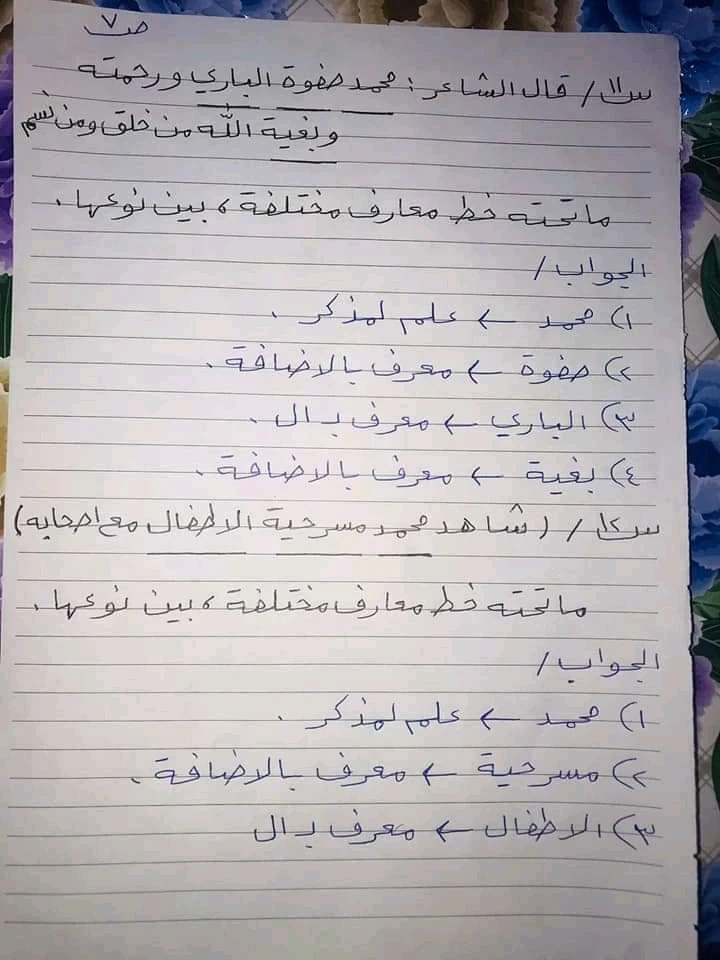 ص ٧
س١١/ قال الشاعر : محمد صفوة الباري ورحمته
وبغية الله من خلق ومن نسم
ماتحته خط معارف مختلفة ، بين نوعها .
الجواب /
١) محمد ← علم لمذكر .
٢) صفوة ← معرف بالاضافة .
٣) الباري ← معرف بـ ال .
٤) بغية ← معرف بالاضافة .
س١٢/ (شاهد محمد مسرحية الاطفال مع اصحابه)
ماتحته خط معارف مختلفة ، بين نوعها .
الجواب /
١) محمد ← علم لمذكر .
٢) مسرحية ← معرف بالاضافة .
٣) الاطفال ← معرف بـ ال